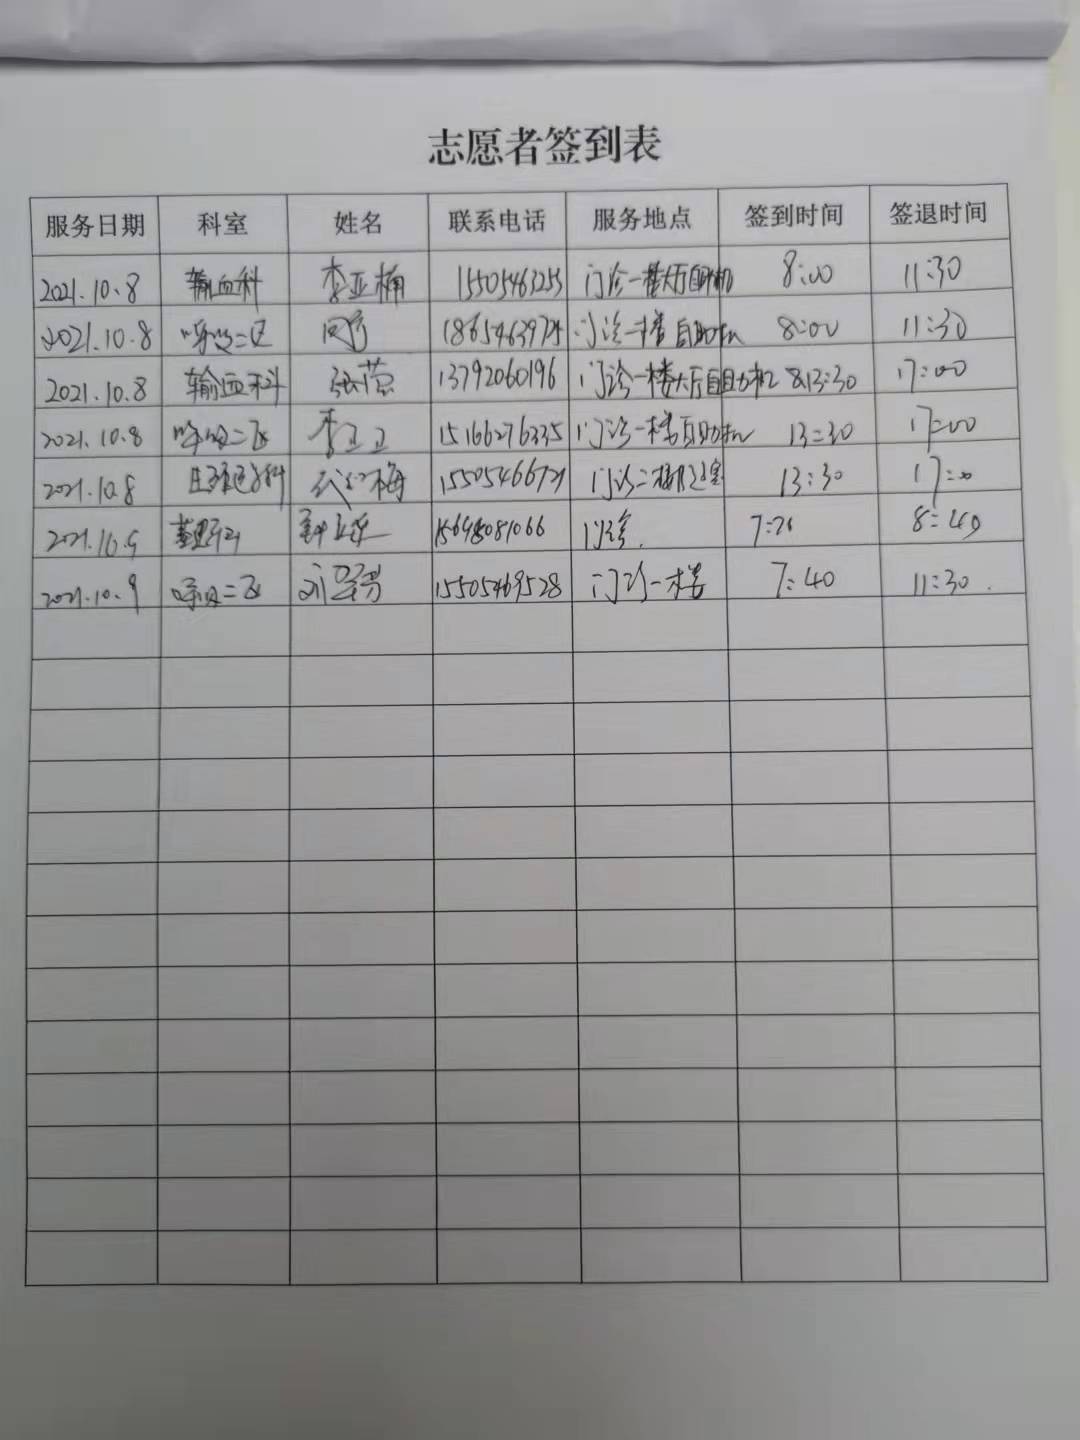 志愿者签到表
服务日期 科室 姓名 联系电话 服务地点 签到时间 签退时间
2021.10.8 输血科 李亚楠 15505463253 门诊一楼大厅自助机 8:00 11:30
2021.10.8 呼吸二区 门诊一楼自助机 8:00 11:30
2021.10.8 输血科 张莹 13792060196 门诊一楼大厅自助机 13:30 17:00
2021.10.8 呼吸二区 李卫卫 15166276335 门诊一楼自助机 13:30 17:00
2021.10.8 15505466721 门诊二楼 13:30 17:00
2021.10.9 门诊 8:40
2021.10.9 呼吸二区 刘 15505469528 门诊一楼 7:40 11:30